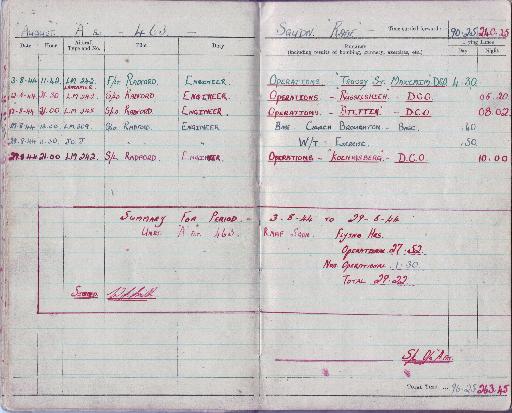 "August" "A" 463 Squdn. "RAAF" Time carried forward:— 90.25 240.25
Date Hour Aircraft Type and No. Pilot Duty Remarks (including results of bombing, gunnery, exercises, etc.) Flying Times Day Night
3-8-44 11.42 LM 242. F/Lt RADFORD. ENGINEER. OPERATIONS "TROSSY ST. MAXIMIM DCO 4.30
LANCASTER
LM 242. S/LD RADFORD ENGINEER. OPERATIONS - "RUSSELSHEIM" - D.C.O. 05.20
21.00 LM 242 S/LD RADFORD. ENGINEER. OPERATIONS. - "STETTIN" - D.C.O 08.02
S/LD RADFORD ENGINEER BASE - CHURCH BROUGHTON - BASE. .40
" " W/T. EXERCISE. .50
29.8.44 21.00 LM 242. S/L RADFORD. ENGINEER. OPERATIONS - "KOENIGSBERG" - D.C.O 10.00
SUMMARY FOR PERIOD - 3-8-44 TO 29-8-44
UNIT "A" FLT. 463. RAAF SQDN. FLYING HRS.
OPERATIONAL 27.52
NON OPERATIONAL 1.30
TOTAL 29.22
SIGNED
S/L
TOTAL TIME ... 96.25 263.45